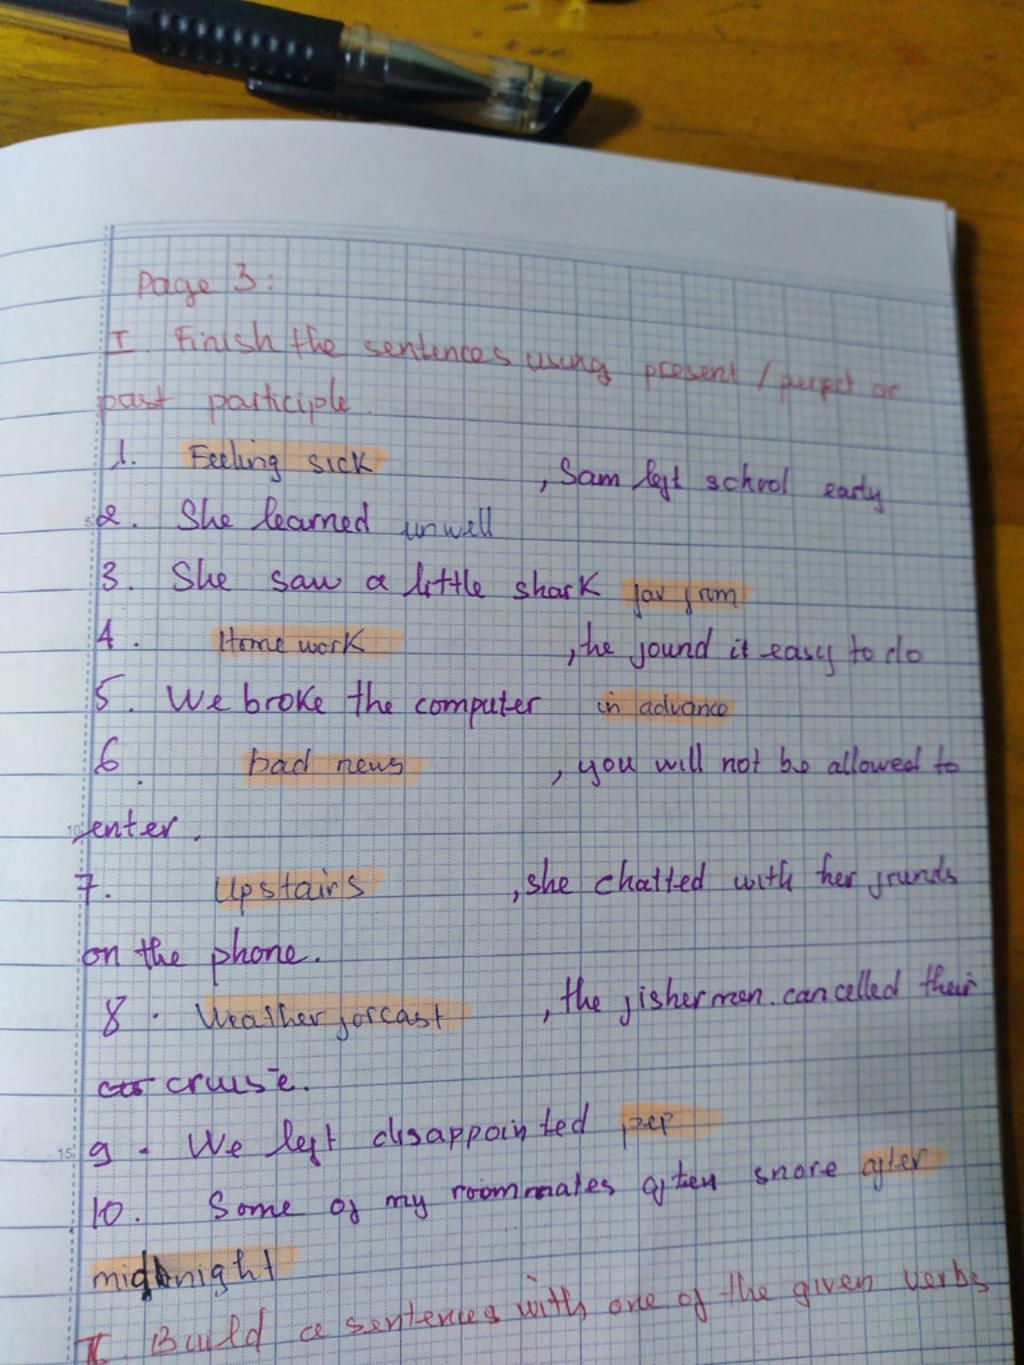 Page 3:
I. Finish the sentences using present / perfect or
past participle.
1. Feeling sick , Sam left school early
2. She learned unwell
3. She saw a little shark far from
4. Home work , he found it easy to do
5. We broke the computer in advance
6. bad news , you will not be allowed to
enter.
7. Upstairs , she chatted with her friends
on the phone.
8. Weather forcast , the fishermen cancelled their
cruise.
9. We left disappointed
10. Some of my roommates often snore after
midnight
II. Build a sentences with one of the given verbs